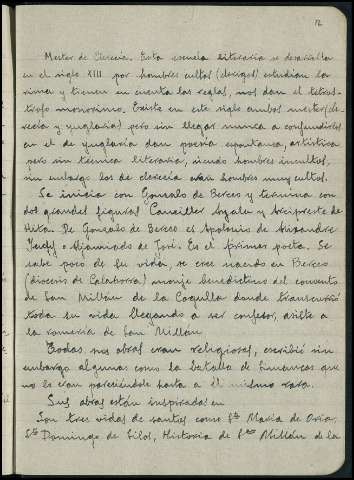 12
Mester de Clerecía. Esta escuela literaria se desarrolla
en el siglo XIII por hombres cultos (clérigos) estudian la
rima y tienen en cuenta las reglas, nos dan el tetrás-
trofo monorimo. Existe en este siglo ambos mester (cle-
recía y juglaria) pero sin llegar nunca a confundirse
en el de juglaria dan poesía espontanea, artística
pero sin técnica literaria, siendo hombres incultos,
sin embargo los de clerecía eran hombres muy cultos.
Se inicia con Gonzalo de Berceo y termina con
dos grandes figuras Canciller Ayala y Arcipreste de
Hita. De Gonzalo de Berceo es Apolonio de Alixandre
o Afamirado de Jori. Es el primer poeta. Se
sabe poco de su vida, se cree nacido en Berceo
(diocesis de Calahorra) monje benedictino del convento
de San Millán de la Cogulla donde transcurrió
toda su vida llegando a ser confesor, asiste a
la romería de San Millán.
Todas sus obras eran religiosas, escribió sin
embargo algunas como la batalla de Simancas que
no es eran pareciéndole hasta a él mismo rara.
Sus obras están inspiradas en
Son tres vidas de santos como Sta María de Oria
Sto Domingo de Silos, Historia de San Millán de la